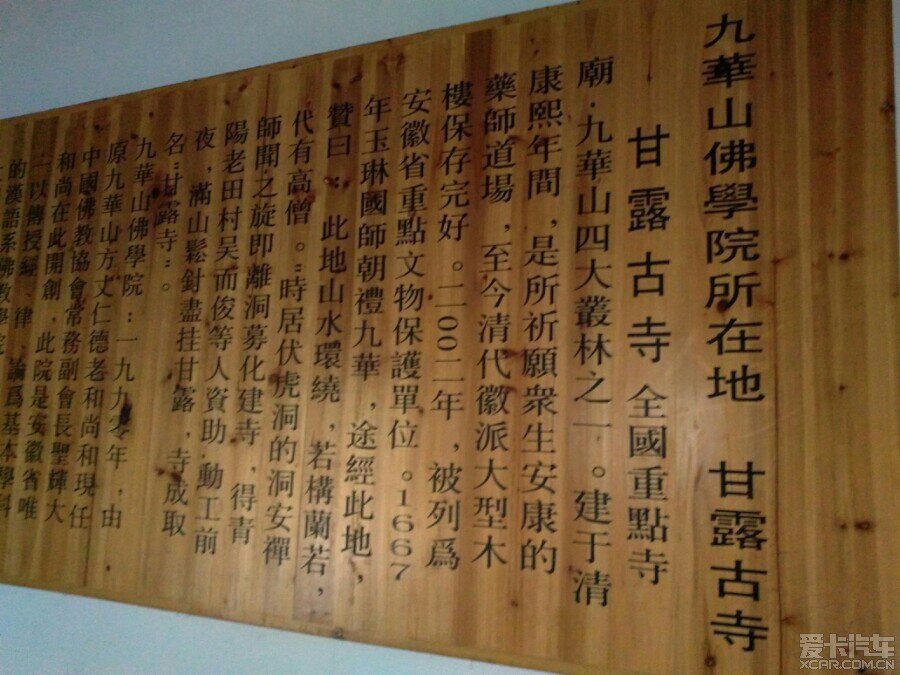 九華山佛學院所在地 甘露古寺
甘露古寺 全國重點寺
廟·九華山四大叢林之一。建于清
康熙年間，是所祈願衆生安康的
藥師道場，至今清代徽派大型木
樓保存完好。二00二年，被列爲
安徽省重點文物保護單位。1667
年玉琳國師朝禮九華，途經此地，
贊曰：“此地山水環繞，若構蘭若，
代有高僧。”時居伏虎洞的洞安禪
師聞之旋即離洞募化建寺，得青
陽老田村吴而俊等人資助·動工前
夜，滿山鬆針盡挂甘露，寺成取
名“甘露寺”。
九華山佛學院：一九九零年，由
原九華山方丈仁德老和尚和現任
中國佛教協會常務副會長聖輝大
和尚在此開創，此院是安徽省唯
一以傳授經、律、論爲基本學科
的漢語系佛教學院
爱卡汽车
XCAR.COM.CN